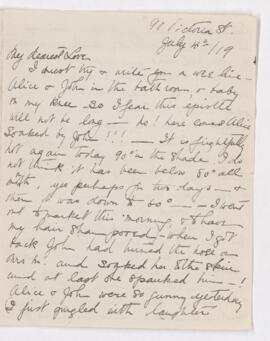 92 Victoria St.
July 4th/19
My dearest Love
I must try & write you a wee line -
Alice & John in the bath room, & baby
on my knee so I fear this epistle
will not be long - no! here comes Alice
soaked by John!!! - It is frightfully
hot again today 90° in the shade. I do
not think it has been below 80° all
month, yes perhaps for two days - &
then it was down to 60° - - I went
out to market this morning & to have
my hair shampooed & when I got
back John had turned the hose on
Mrs M. and soaked her to the skin
and at last she spanked him - !
Alice & John were so funny yesterday
I just gurgled with laughter